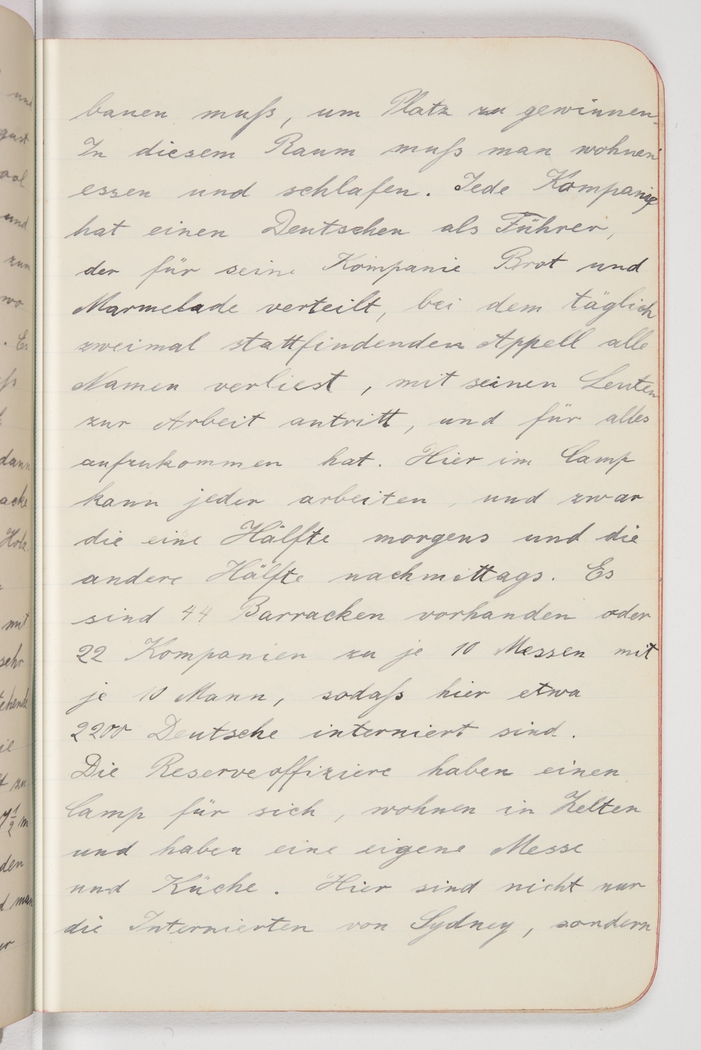 bauen muß, um Platz zu gewinnen.
In diesem Raum muß man wohnen
essen und schlafen. Jede Kompanie
hat einen Deutschen als Führer,
der für seine Kompanie Brot und
Marmelade verteilt, bei dem täglich
zweimal stattfindenden Appell alle
Namen verliest, mit seinen Leuten
zur Arbeit antritt, und für alles
aufzukommen hat. Hier im Camp
kann jeder arbeiten, und zwar
die eine Hälfte morgens und die
andere Hälfte nachmittags. Es
sind 44 Barracken vorhanden oder
22 Kompanien zu je 10 Messen mit
je 10 Mann, sodaß hier etwa
2200 Deutsche interniert sind.
Die Reserveoffiziere haben einen
Camp für sich, wohnen in Zelten
und haben eine eigene Messe
und Küche. Hier sind nicht nur
die Internierten von Sydney, sondern